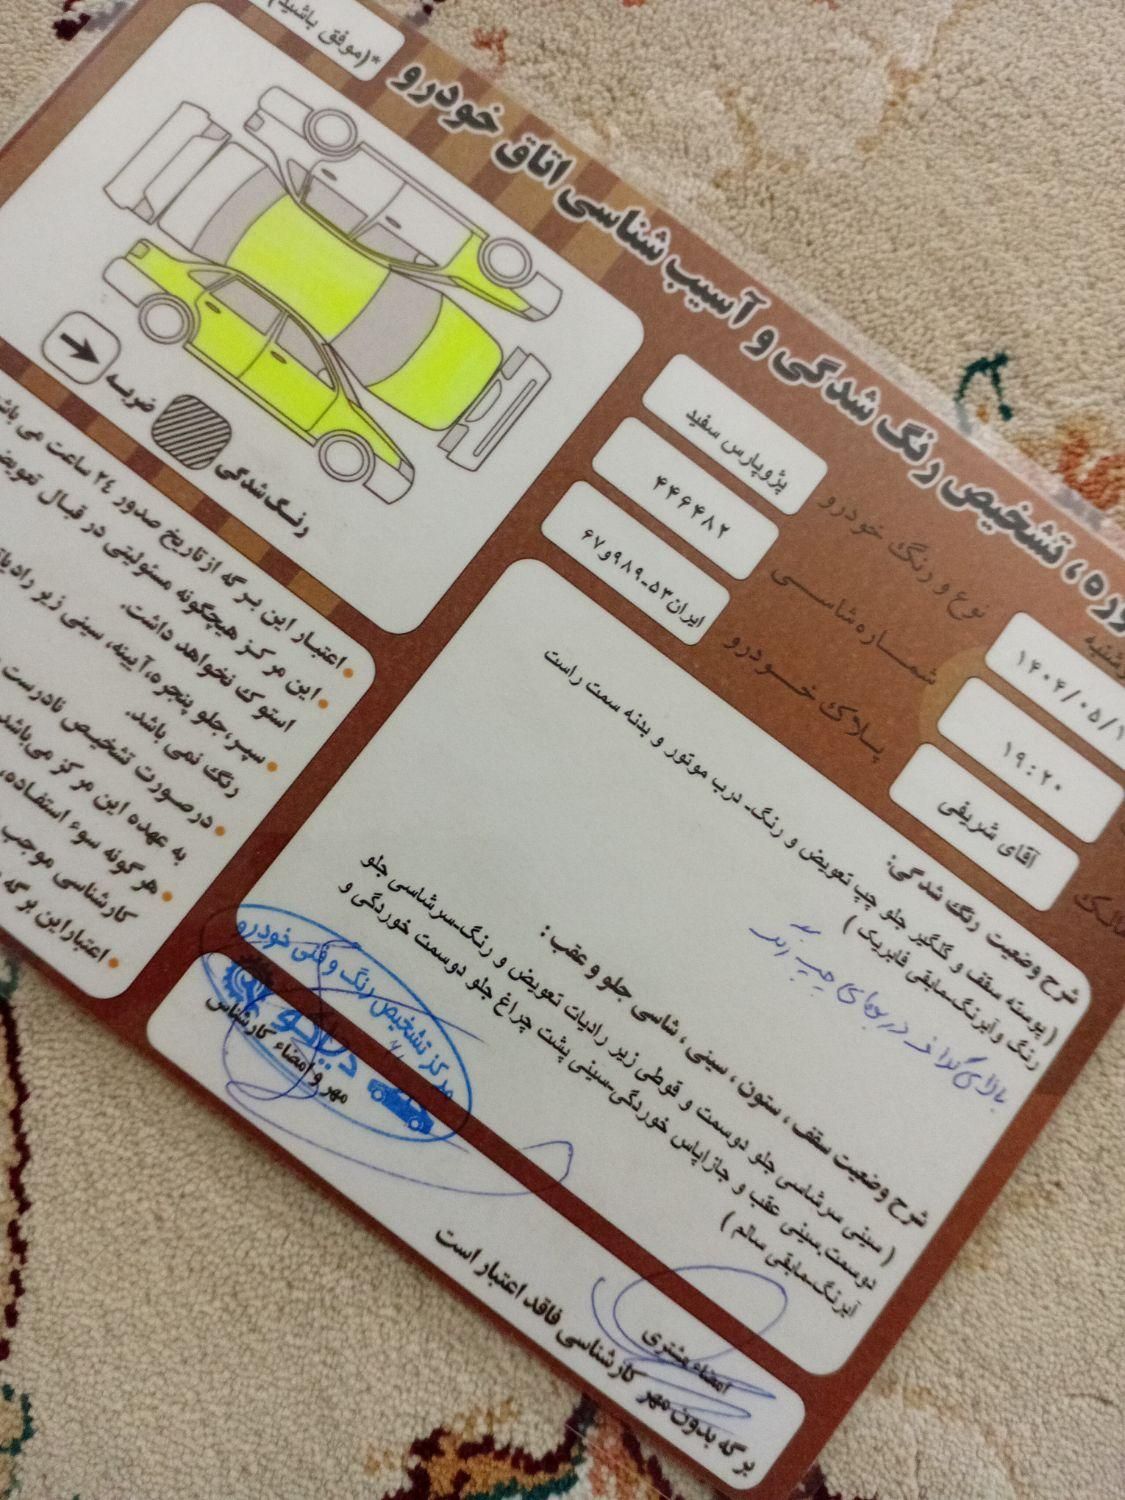 *(موفق باشید)
وره ، تشخیص رنگ شدگی و آسیب شناسی اتاق خودرو
۱۴۰۴/۰۵/۱
۱۹:۲۰
آقای شریفی
نوع و رنگ خودرو
پژوپارس سفید
شماره شاسی
۴۴۶۴۸۲
پلاک خودرو
ایران۵۳-۹۸۹و۶۷
شرح وضعیت رنگ شدگی:
( پوسته سقف و گلگیر جلو چپ تعویض و رنگ- درب موتور و بدنه سمت راست
رنگ وآبرنگ-مابقی فابریک )
شرح وضعیت سقف ، ستون ، سینی ، شاسی جلو و عقب :
( سینی سرشاسی جلو دوسمت و قوطی زیر رادیات تعویض و رنگ-سرشاسی جلو
دوسمت-سینی عقب و جازاپاس خوردگی-سینی پشت چراغ جلو دوسمت خوردگی و
آبرنگ-مابقی سالم )
امضاء مشتری
مهر و امضاء کارشناس
مرکز تشخیص رنگ و فنی خودرو
برگه بدون مهر کارشناسی فاقد اعتبار است
ضربه
رنگ شدگی
• اعتبار این برگه از تاریخ صدور ۲۴ ساعت می باش
• این مرکز هیچگونه مسئولیتی در قبال تعویض
استوک نخواهد داشت.
• سپر، جلو پنجره، آیینه، سینی زیر رادیات
رنگ نمی باشد.
• درصورت تشخیص نادرست
به عهده این مرکز می‌باشد
• هرگونه سوء استفاده،
کارشناسی موجب
• اعتبار این برگه